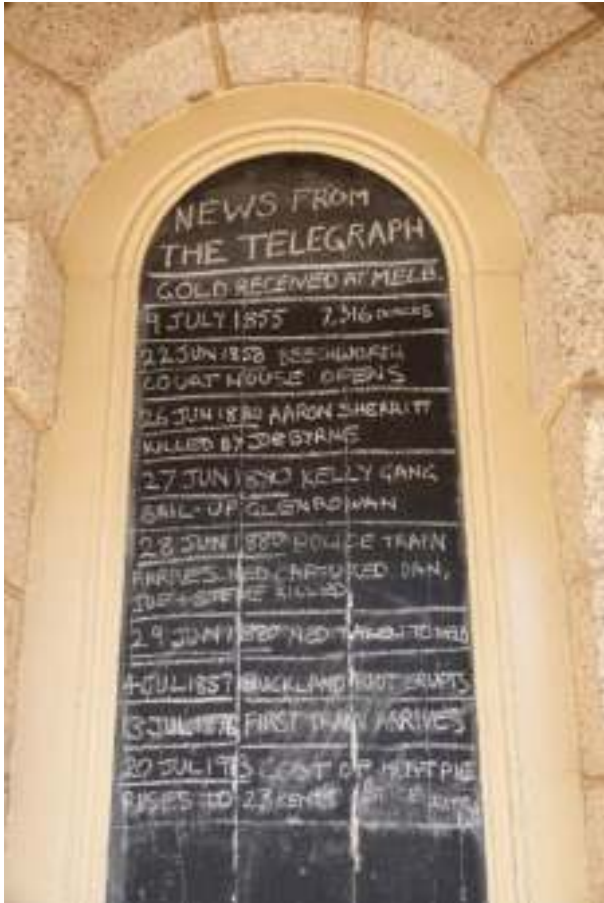 NEWS FROM
THE TELEGRAPH
GOLD RECEIVED AT MELB.
9 JULY 1855 7,316 OUNCES
22 JUN 1858 BEECHWORTH
COURT HOUSE OPENS
26 JUN 1880 AARON SHERRITT
KILLED BY JOE BYRNE
27 JUN 1880 KELLY GANG
BAIL-UP GLENROWAN
28 JUN 1880 POLICE TRAIN
ARRIVES. NED CAPTURED DAN,
JOE + STEVE KILLED
29 JUN 1880 NED TAKEN TO MELB
4 JUL 1857 BUCKLAND RIOT ERUPTS
13 JUL 1876 FIRST TRAIN ARRIVES
20 JUL COST OF PIE
RISES TO 23 CENTS